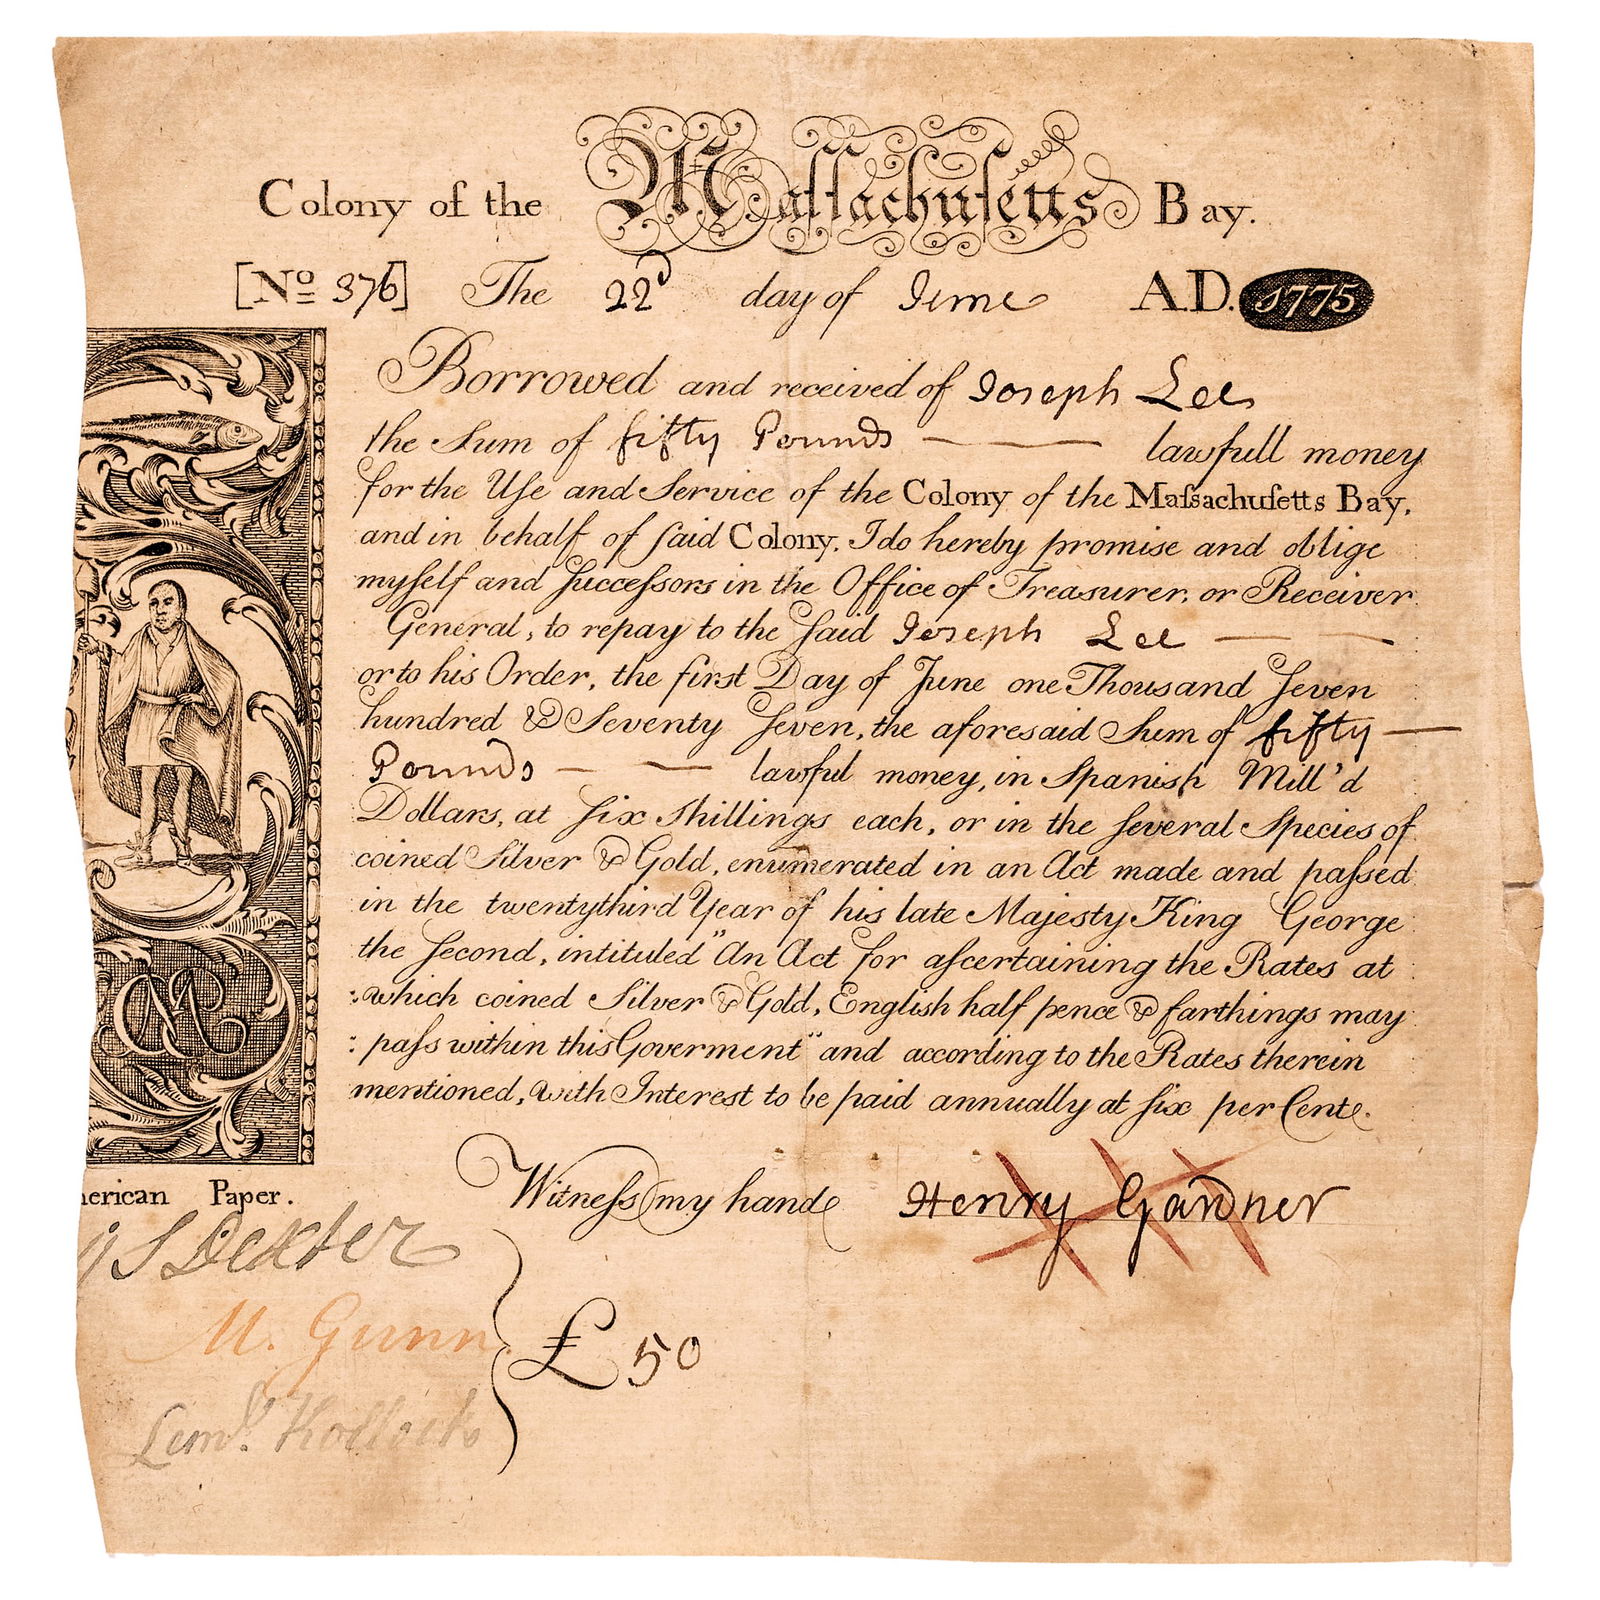 Colony of the Maſſachuſetts Bay.
[No 376] The 22d day of June A.D. 1775
Borrowed and received of Joseph Lee
the Sum of fifty Pounds — — lawfull money
for the Uſe and Service of the Colony of the Maſsachuſetts Bay,
and in behalf of ſaid Colony. I do hereby promise and oblige
myſelf and ſucceſsors in the Office of Treasurer, or Receiver
General, to repay to the ſaid Joseph Lee — —
or to his Order, the first Day of June one Thousand ſeven
hundred & Seventy ſeven, the aforesaid Sum of fifty —
Pounds — — lawful money, in Spanish Mill'd
Dollars, at ſix Shillings each, or in the ſeveral Species of
coined Silver & Gold, enumerated in an Act made and paſsed
in the twentythird Year of his late Majesty King George
the ſecond, intituled "An Act for aſcertaining the Rates at
which coined Silver & Gold, English half pence & farthings may
paſs within this Goverment" and according to the Rates therein
mentioned, with Interest to be paid annually at ſix per Cent.
Witneſs my hand Henry Gardner
erican Paper.
S Dexter
M. Gunn
Leml. Kollock
£50
M